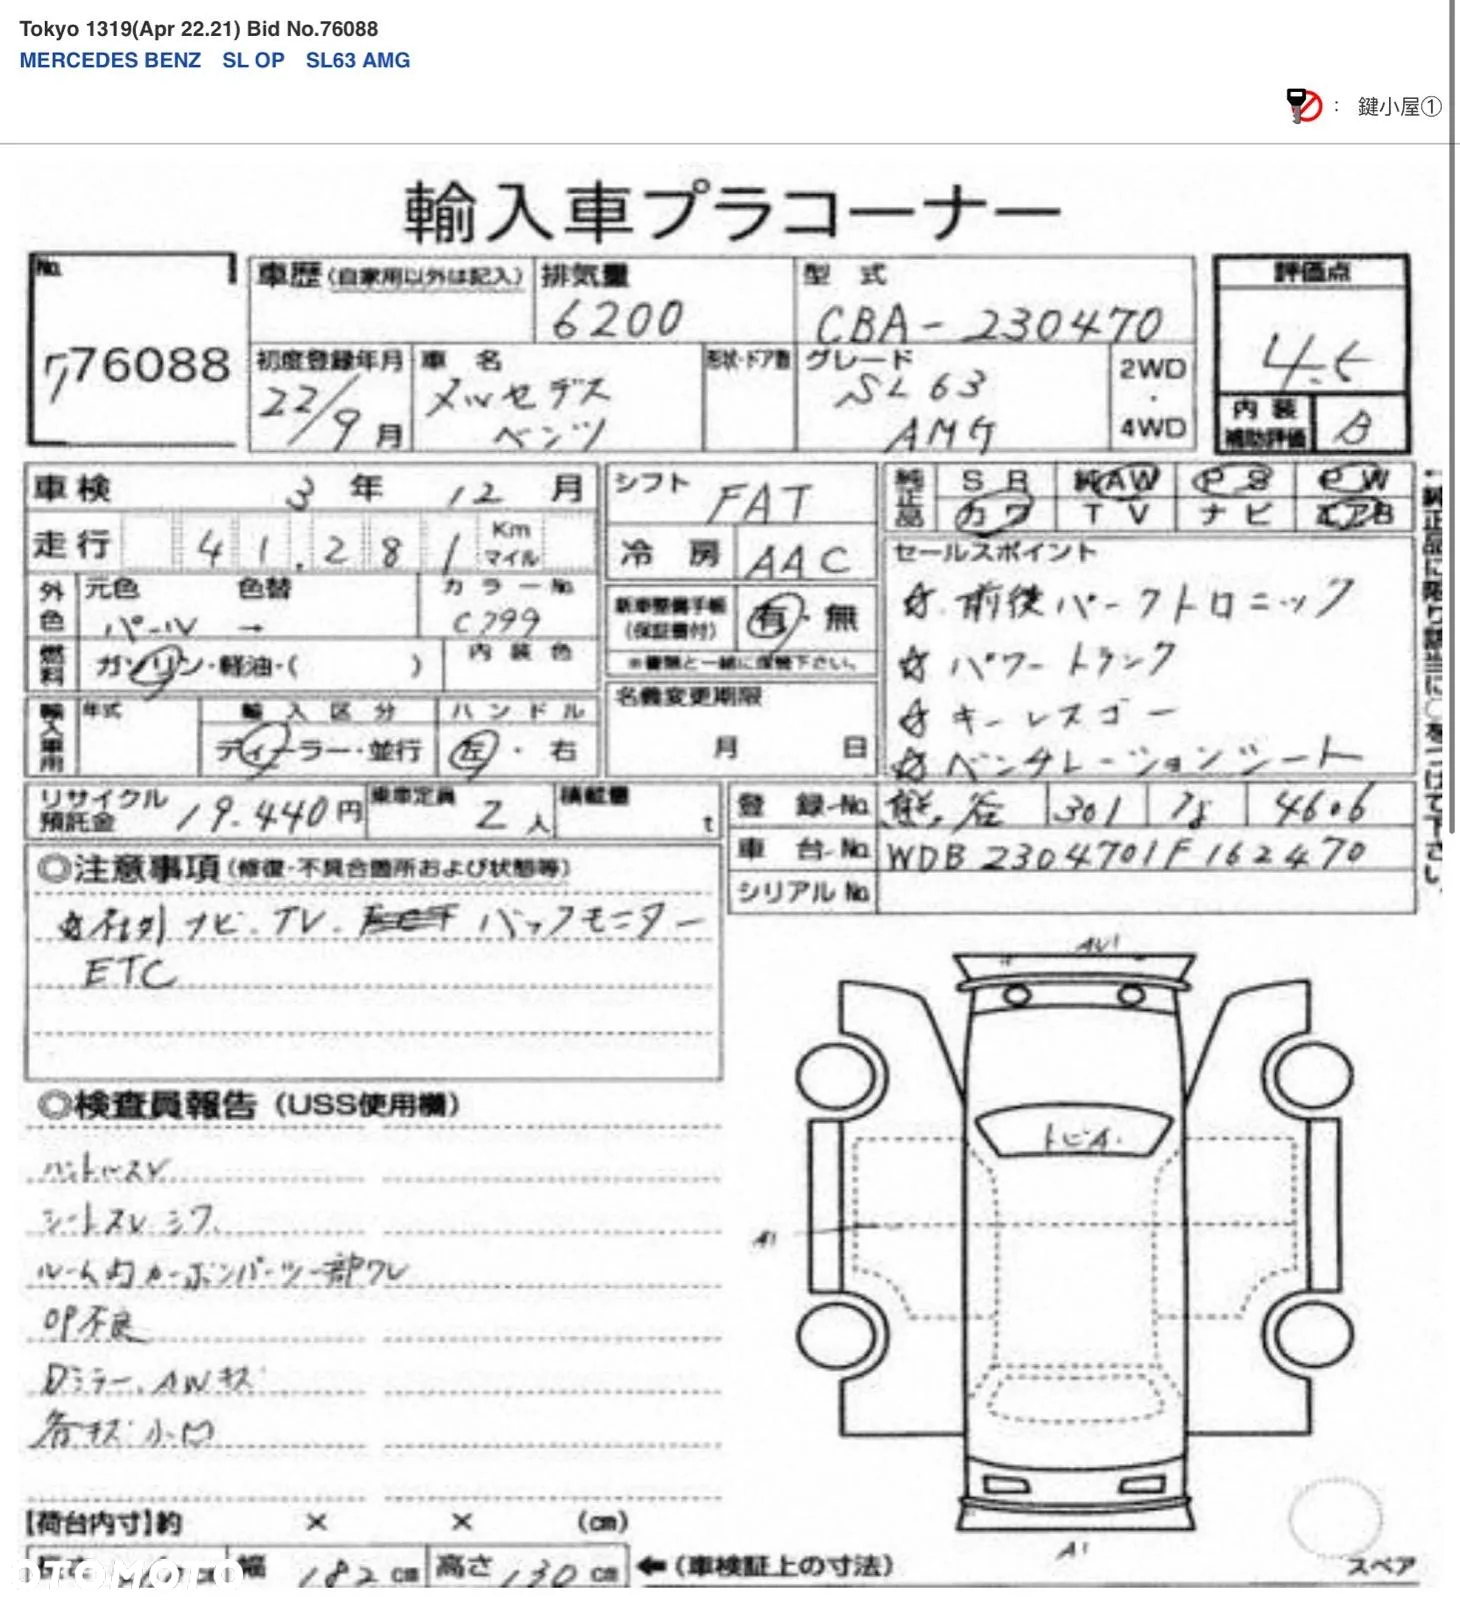 Tokyo 1319(Apr 22.21) Bid No.76088
MERCEDES BENZ SL OP SL63 AMG
： 鍵小屋①
輸入車プラコーナー
No. 76088
車歴(自家用以外は記入) 排気量 6200 型式 CBA-230470 評価点 4.5
初度登録年月 22/9月 車名 メルセデスベンツ 形状・ドア数 グレード SL63 AMG 2WD・4WD 内装補助評価 B
車検 3年 12月 シフト FAT 純正品 SR 純AW PS PW
走行 41.281 Km マイル 冷房 AAC カワ TV ナビ エアB
外色 元色 パール → 色替 カラーNo. C799
新車整備手帳(保証書付) 有・無
※書類と一緒に保管下さい。
燃料 ガソリン・軽油・( ) 内装色
名義変更期限 月 日
セールスポイント
☆.前後パークトロニック
☆ パワートランク
☆ キーレスゴー
☆ ベンチレーションシート
輸入車用 年式 輸入区分 ディーラー・並行 ハンドル 左・右
リサイクル預託金 19.440円 乗車定員 2人 積載量 t
登録No. 熊谷 301 4606
車台No. WDB2304701F162470
シリアルNo.
◎注意事項(修復・不具合箇所および状態等)
☆社外 ナビ.TV. バックモニター
ETC
◎検査員報告(USS使用欄)
ハンドルスレ
シートスレ シワ
ルーム内カーボンパーツ一部ワレ
OP不良
Dミラー、AWキズ
各キズ 小凹
AU1
トビA.
A1
A1
【荷台内寸】約 × × (cm)
幅 182cm 高さ 130cm ←(車検証上の寸法)
スペア
OTOMOTO